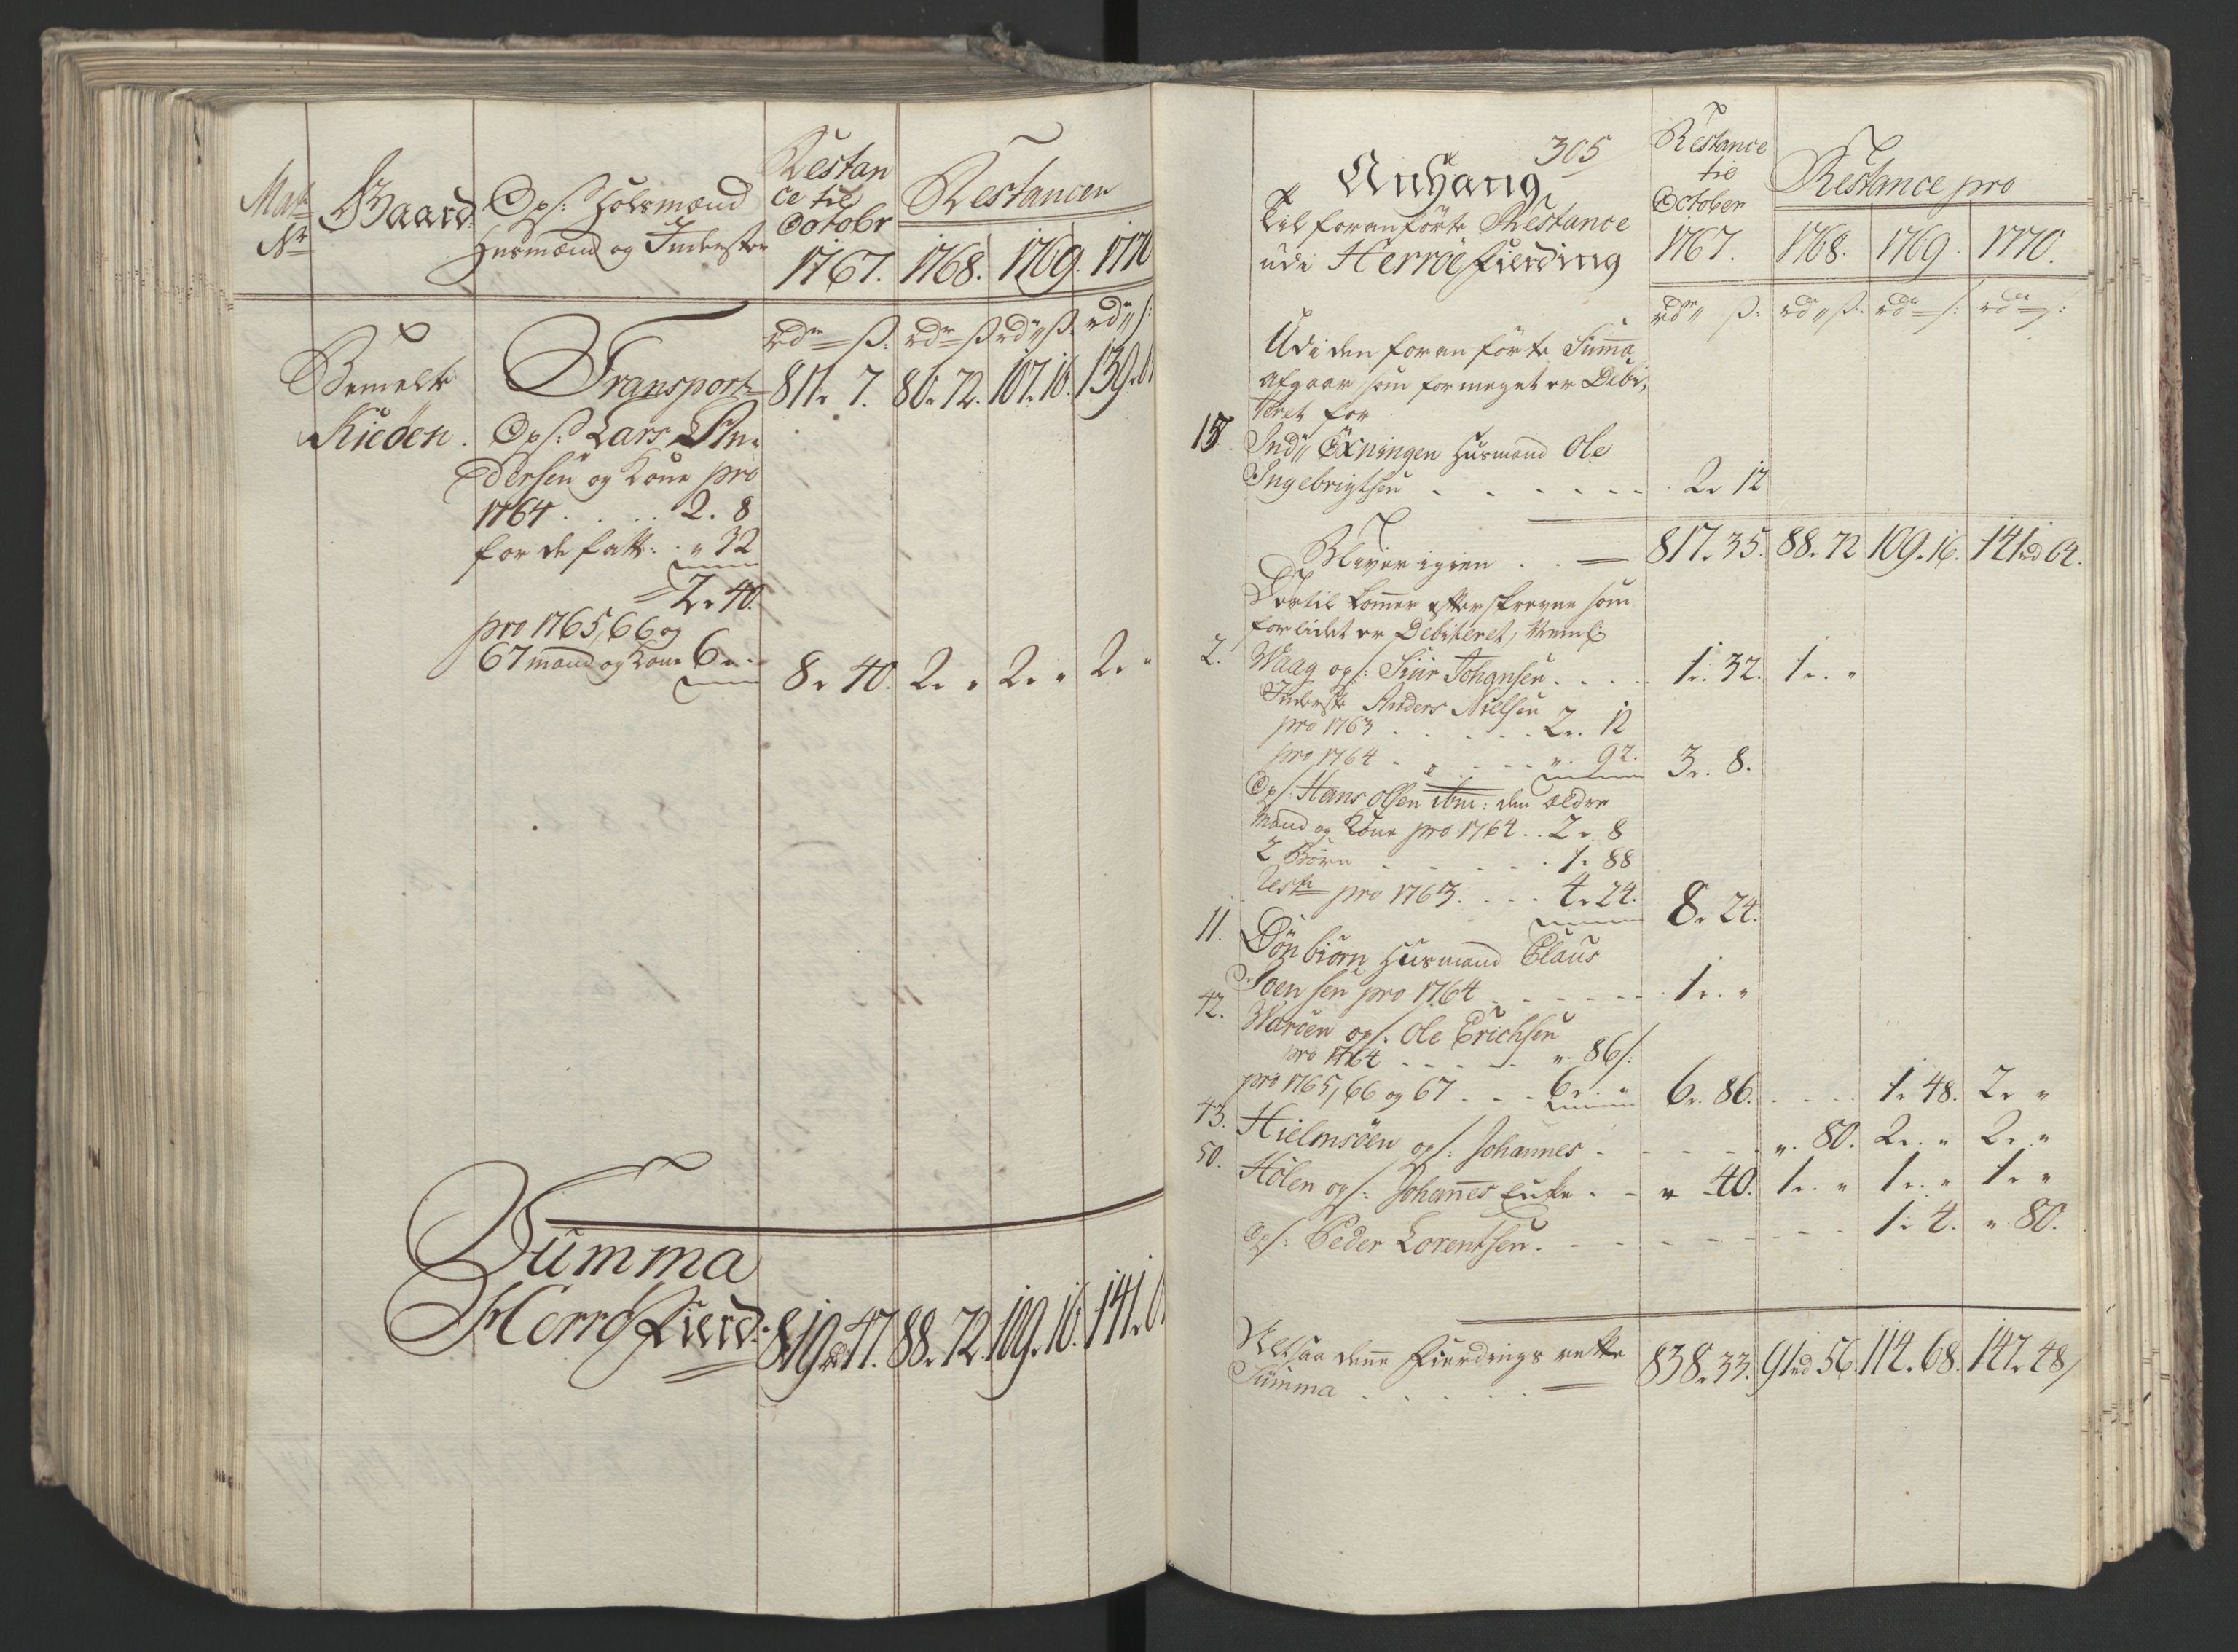 Mat: Nr
Gaard.
Ops: Holsmænd
Husmænd og Inderster
Restan
ce til
Octobr
1767.
Restancer
1768. 1769. 1770
rdr ß. rdr ß rdr ß. rdr ß:
Bemelte
Transport 811. 7. 86. 72. 107. 16. 139.
Kieöen. Ops: Lars An-
dersen og Kone pro
1764 . . . . 2. 8
for de fatt: . " 32
2. 40.
pro 1765, 66 og
67 mand og Kone 6 . "
8. 40. 2. " 2. " 2. "
Summa
Herrö Fierd: 819. 47. 88. 72. 109. 16. 141.
305
Anhang
Til foranförte Restance
udi Herröe Fierding
Restance
til
October
1767.
Restance pro
1768. 1769. 1770.
rdr ß. rdr ß. rdr ß: rdr ß:
Udi den foranförte Summa
afgaar som formeget er Debi-
teret for
15. Ind: Öxningen Husmand Ole
Ingebrigtsen . . . . . . 2. 12
Bliver igien . . 817. 35. 88. 72 109. 16. 141 rd 64.
Dertil kommer efterskrevne som
forlidet er Debiteret, Neml:
2. Waag ops: Siur Johansen . . . . 1. 32. 1. "
Inderste Anders Nielsen
pro 1763 . . . . . 2. 12
pro 1764 . . . . . ". 92. 3. 8.
Ops: Hans Olsen ibm: den ældre
Mand og Kone pro 1764 . . 2. 8
2 Börn . . . . . 1. 88
Rest pro 1763. . . . 4. 24. 8. 24.
11. Dönbiörn Husmand Claus
Joensen pro 1764 . . . . . . 1. "
42. Waröen ops: Ole Erichsen
pro 1764 . . . . . ". 86 ß:
pro 1765, 66 og 67 . . . 6. " 6. 86. . . . . 1. 48. 2. "
43. Hielmsöen ops: Johannes . . . . . ". 80. 2. " 2. "
50. Holen ops: Johannes Enke . . " 40. 1. " 1. " 1. "
Ops: Peder Lorentsen . . . . . . . . . 1. 4. ". 80.
Altsaa denne Fierdings rette
Summa . . . . . . 838. 33. 91 rd 56. 114. 68. 147. 48